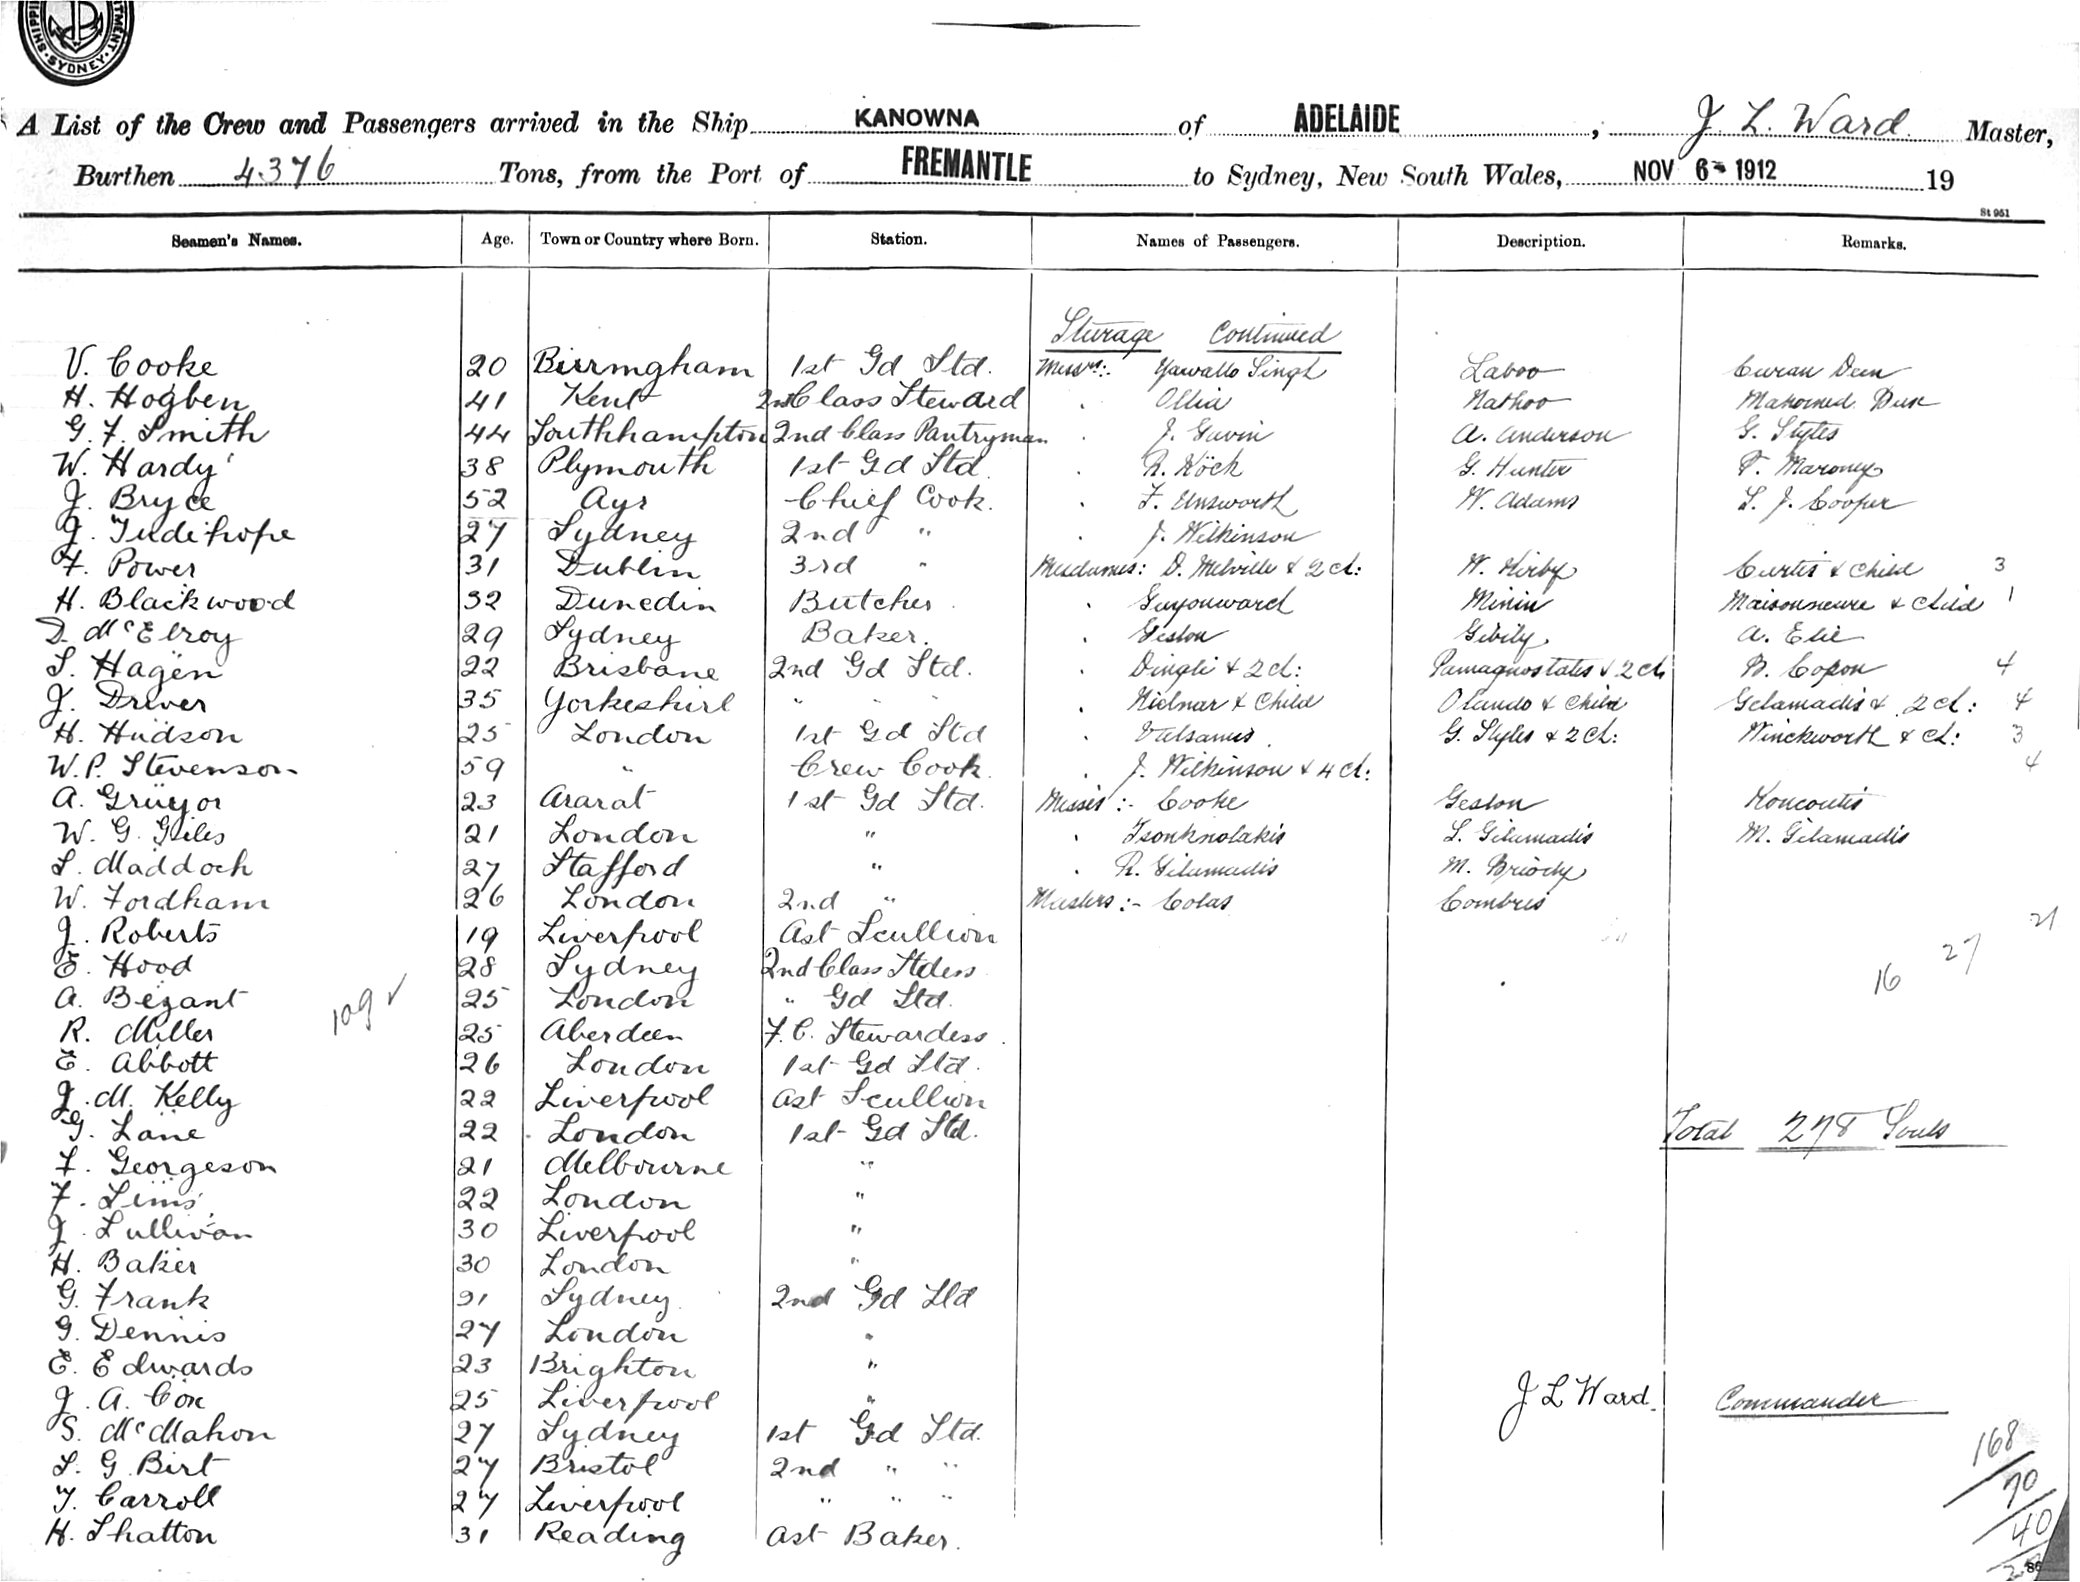 SHIPPI
TMENT.
SYDNEY
A List of the Crew and Passengers arrived in the Ship KANOWNA of ADELAIDE, J L. Ward Master,
Burthen 4376 Tons, from the Port of FREMANTLE to Sydney, New South Wales, NOV 6- 1912 19
St 951
Seamen's Names. Age. Town or Country where Born. Station. Names of Passengers. Description. Remarks.
Sturage Continued
V. Cooke 20 Birmgham 1st Gd Std. Messrs:. Yawallo Singh Laboo Curan Deen
H. Hogben 41 Kent 2nd Class Steward . Ollia Nathoo Mahomed Dux
G. F. Smith 44 Southhampton 2nd Class Pantryman . J. Gavin A. Anderson G. Styles
W. Hardy 38 Plymouth 1st Gd Std . R. Köck G. Hunter T. Maroney
J. Bryce 52 Ayr Chief Cook. . F. Unsworth W. Adams L. J. Cooper
J. Tudehope 27 Sydney 2nd " . J. Wilkinson
F. Power 31 Dublin 3rd " Mesdames: D. Melville & 2 ch: W. Kirby Curtis & Child 3
H. Blackwood 32 Dunedin Butcher . Guyonward Minin Maisonneuve & Child 1
D. McElroy 29 Sydney Baker. . Geston Gibily A. Elie
S. Hagen 22 Brisbane 2nd Gd Std. . Dingli & 2 ch: Pamagnostatis & 2 ch B. Copon 4
J. Driver 35 Yorkeshire " " " . Kidnar & Child Olando & Child Gelamadis & 2 ch: 4
H. Hudson 25 London 1st Gd Std . Valsamis G. Styles & 2 Ch: Winckworth & Ch: 3
W. P. Stevenson 59 " Crew Cook. . J. Wilkinson & 4 Ch: 4
A. Gruyor 23 Ararat 1st Gd Std. Misses:- Cooke Geston Koncoutis
W. G. Giles 21 London " . Tsonknolakis L. Gilamadis M. Gilamadis
S. Maddoch 27 Stafford " . R. Gilamadis M. Briody
W. Fordham 26 London 2nd " Masters:- Colas Combris
J. Roberts 19 Liverpool Ast Scullion 21
E. Hood 28 Sydney 2nd Class Stdess 27
A. Bezant 109 ✓ 25 London " Gd Std. 16
R. Miller 25 Aberdeen F. C. Stewardess.
E. Abbott 26 London 1st Gd Std.
J. M. Kelly 22 Liverpool Ast Scullion
G. Lane 22 London 1st Gd Std. Total 278 Souls
F. Georgeson 21 Melbourne "
F. Sims 22 London "
J. Sullivan 30 Liverpool "
H. Baker 30 London "
G. Frank 31 Sydney 2nd Gd Std
G. Dennis 27 London "
E. Edwards 23 Brighton "
J. A. Cox 25 Liverpool " J L Ward. Commander
S. McMahon 27 Sydney 1st Gd Std. 168
L. G. Birt 27 Bristol 2nd " " 70
T. Carroll 27 Liverpool " " " 40
H. Shatton 31 Reading Ast Baker.